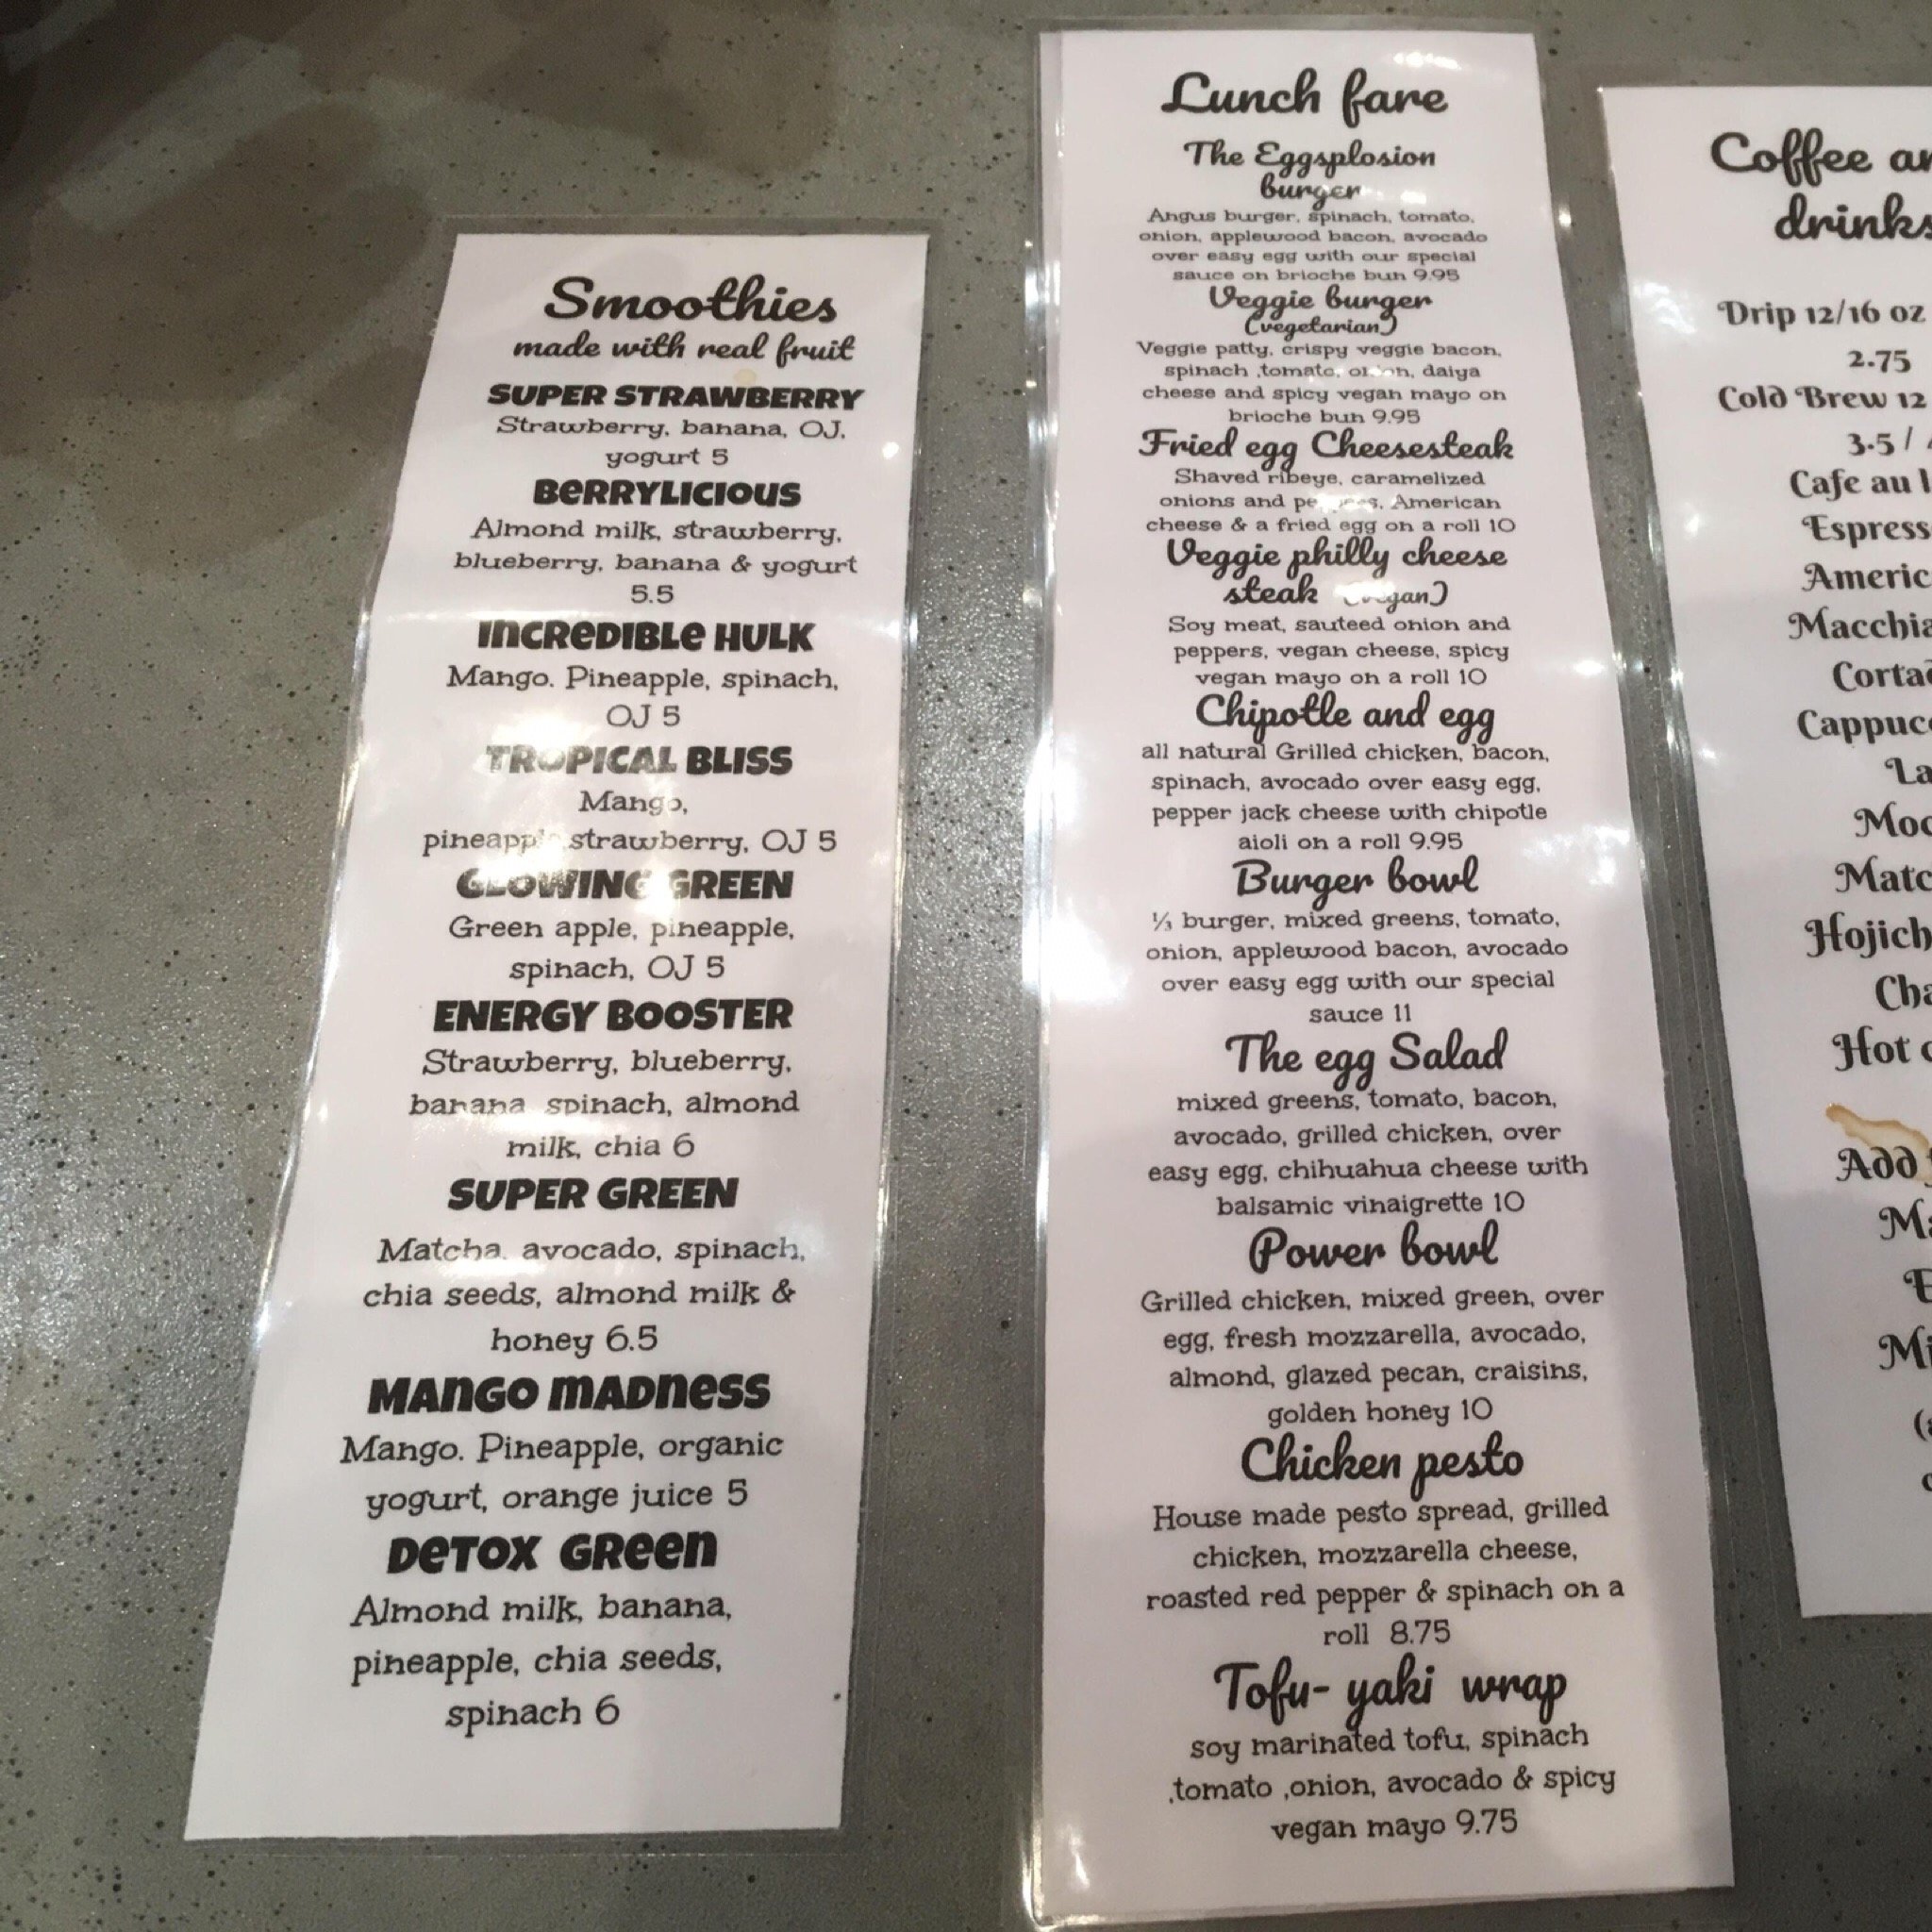 Smoothies
made with real fruit
SUPER STRAWBERRY
Strawberry, banana, OJ,
yogurt 5
BERRYLICIOUS
Almond milk, strawberry,
blueberry, banana & yogurt
5.5
INCREDIBLE HULK
Mango. Pineapple, spinach,
OJ 5
TROPICAL BLISS
Mango,
strawberry, OJ 5
GLOWING GREEN
Green apple, pineapple,
spinach, OJ 5
ENERGY BOOSTER
Strawberry, blueberry,
banana spinach, almond
milk, chia 6
SUPER GREEN
Matcha. avocado, spinach,
chia seeds, almond milk &
honey 6.5
MANGO MADNESS
Mango. Pineapple, organic
yogurt, orange juice 5
DETOX GREEN
Almond milk, banana,
pineapple, chia seeds,
spinach 6
Lunch fare
The Eggsplosion
burger
Angus burger, spinach, tomato,
onion, applewood bacon, avocado
over easy egg with our special
sauce on brioche bun 9.95
Veggie burger
(vegetarian)
Veggie patty, crispy veggie bacon,
spinach ,tomato, onion, daiya
cheese and spicy vegan mayo on
brioche bun 9.95
Fried egg Cheesesteak
Shaved ribeye, caramelized
onions and American
cheese & a fried egg on a roll 10
Veggie philly cheese
steak (vegan)
Soy meat, sauteed onion and
peppers, vegan cheese, spicy
vegan mayo on a roll 10
Chipotle and egg
all natural Grilled chicken, bacon,
spinach, avocado over easy egg,
pepper jack cheese with chipotle
aioli on a roll 9.95
Burger bowl
⅓ burger, mixed greens, tomato,
onion, applewood bacon, avocado
over easy egg with our special
sauce 11
The egg Salad
mixed greens, tomato, bacon,
avocado, grilled chicken, over
easy egg, chihuahua cheese with
balsamic vinaigrette 10
Power bowl
Grilled chicken, mixed green, over
egg, fresh mozzarella, avocado,
almond, glazed pecan, craisins,
golden honey 10
Chicken pesto
House made pesto spread, grilled
chicken, mozzarella cheese,
roasted red pepper & spinach on a
roll 8.75
Tofu- yaki wrap
soy marinated tofu, spinach
,tomato ,onion, avocado & spicy
vegan mayo 9.75
Coffee
drinks
Drip 12/16 oz
2.75
Cold Brew 12
3.5 /
Cafe au
Hot
Add